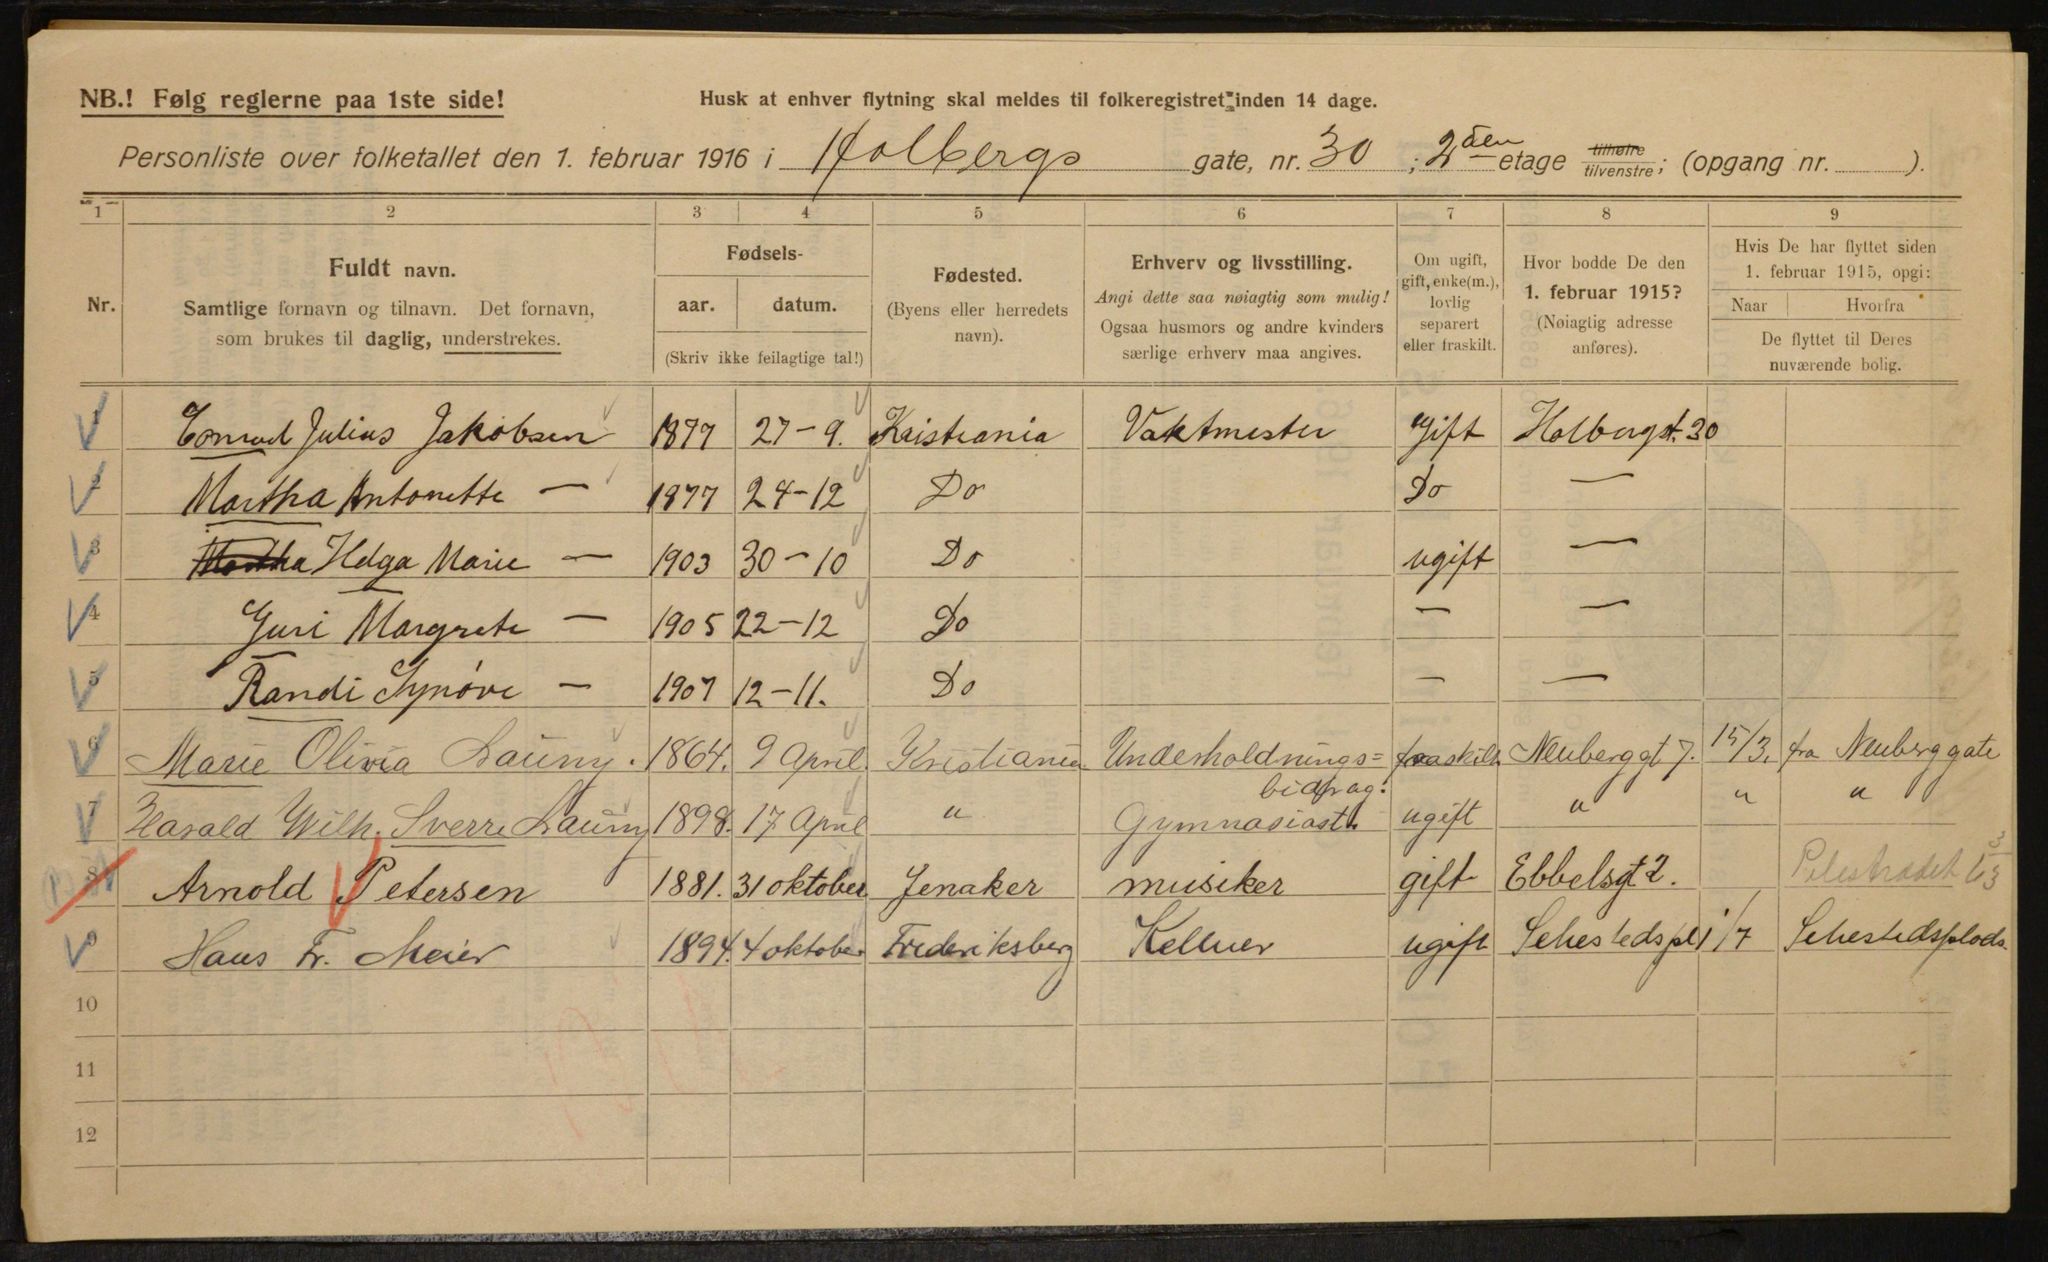 NB.! Følg reglerne paa 1ste side!
Husk at enhver flytning skal meldes til folkeregistret inden 14 dage.
Personliste over folketallet den 1. februar 1916 i Holbergs gate, nr. 30; 2den etage tilhøire tilvenstre; (opgang nr. ).
1 2 3 4 5 6 7 8 9
Nr.
Fuldt navn.
Samtlige fornavn og tilnavn. Det fornavn,
som brukes til daglig, understrekes.
Fødsels-
aar. datum.
(Skriv ikke feilagtige tal!)
Fødested.
(Byens eller herredets
navn).
Erhverv og livsstilling.
Angi dette saa nøiagtig som mulig!
Ogsaa husmors og andre kvinders
særlige erhverv maa angives.
Om ugift,
gift, enke(m.),
lovlig
separert
eller fraskilt.
Hvor bodde De den
1. februar 1915?
(Nøiagtig adresse
anføres).
Hvis De har flyttet siden
1. februar 1915, opgi:
Naar Hvorfra
De flyttet til Deres
nuværende bolig.
1 Conrad Julius Jakobsen 1877 27-9. Kristiania Vaktmester Gift Holbergst. 30
2 Martha Antonette — 1877 24-12 Do Do —
3 Martha Helga Marie — 1903 30-10 Do ugift —
4 Guri Margrete — 1905 22-12 Do — —
5 Randi Synöve — 1907 12-11. Do — —
6 Marie Olivia Launy. 1864. 9 April Kristiania Underholdnings= fraskilt Neuberggt 7. 15/3. fra Neuberggate
bidrag.
7 Harald Wilh. Sverre Launy 1898. 17 April " Gymnasiast. ugift " " "
8 Arnold Petersen 1881. 31 oktober Jenaker musiker gift Ebbelsgt 2. Pilestrædet
9 Hans Fr. Meier 1894. 4 oktober Frederiksberg Kellner ugift Sehestedspl 1/7 Sehestedsplads.
10
11
12